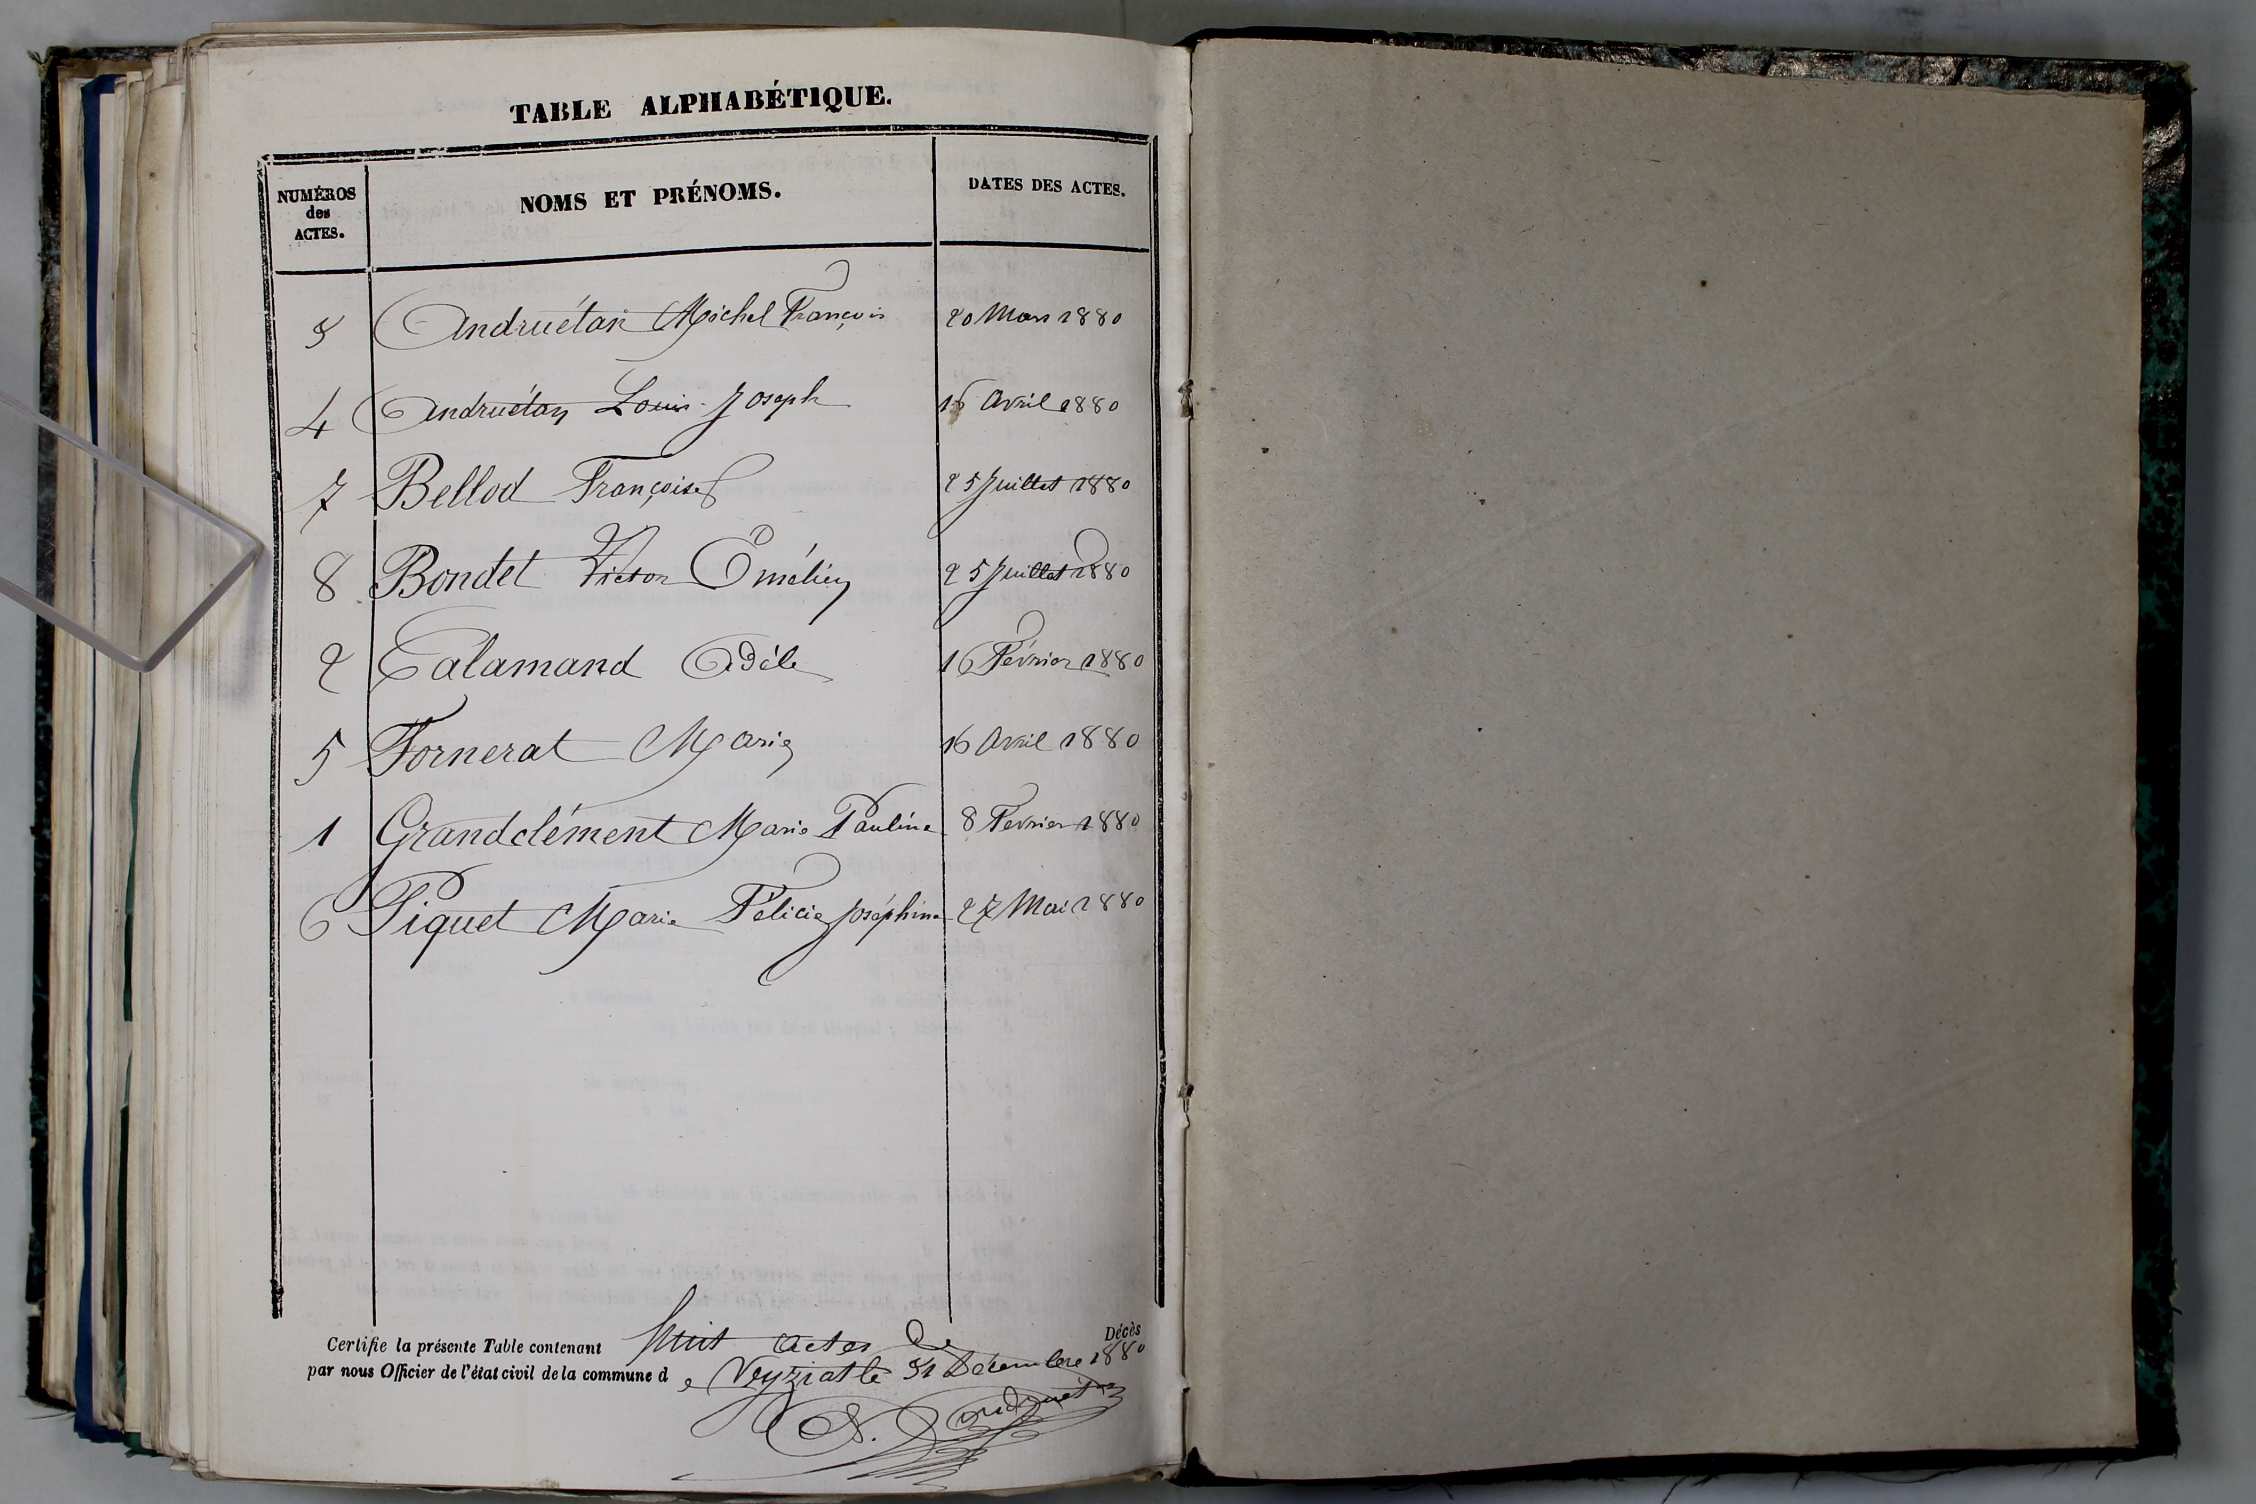 TABLE ALPHABÉTIQUE.
NUMÉROS des ACTES. NOMS ET PRÉNOMS. DATES DES ACTES.
3 Andruétan Michel François 20 Mars 1880
4 Andruétan Louis Joseph 16 Avril 1880
7 Bellod Françoise 25 Juillet 1880
8 Bondet Victor Émélien 25 Juillet 1880
2 Calamand Adèle 16 Février 1880
5 Fornerat Marie 16 Avril 1880
1 Grandclément Marie Pauline 8 Février 1880
6 Piquet Marie Félicie Joséphine 27 Mai 1880
Certifie la présente Table contenant huit actes de Décès
par nous Officier de l'état civil de la commune d e Veyziat le 31 Décembre 1880